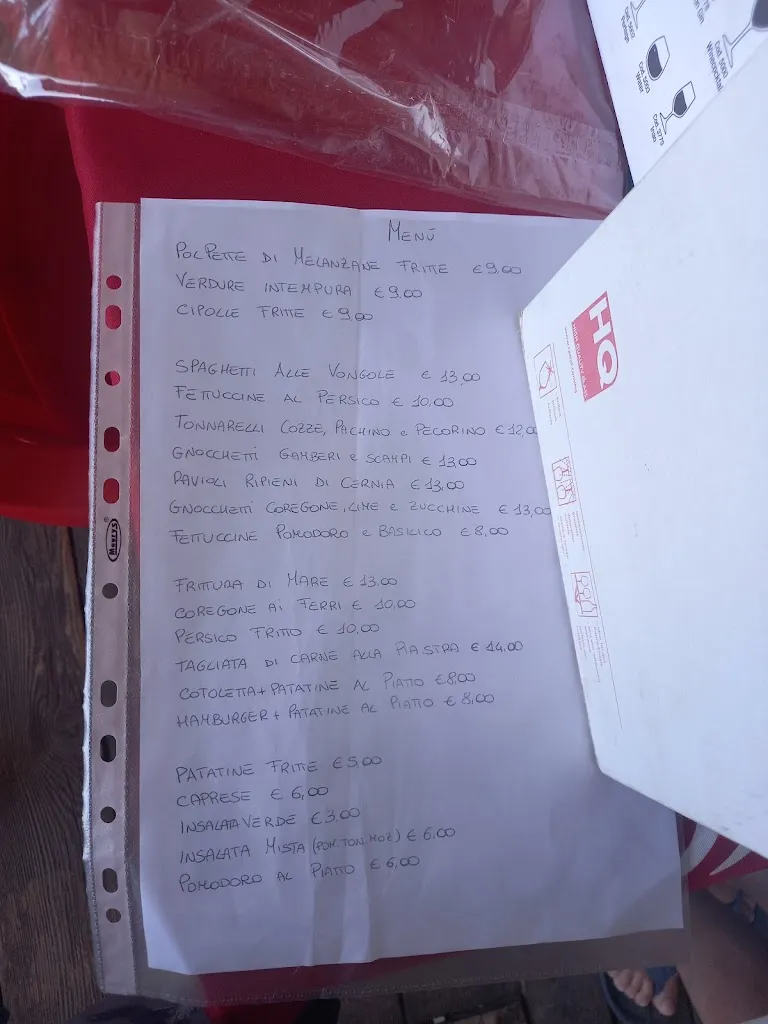 MENÚ
POLPETTE DI MELANZANE FRITTE €9,00
VERDURE INTEMPURA €9,00
CIPOLLE FRITTE €9,00
SPAGHETTI ALLE VONGOLE € 13,00
FETTUCCINE AL PERSICO € 10,00
TONNARELLI COZZE, PACHINO e PECORINO € 12,00
GNOCCHETTI GAMBERI e SCAMPI € 13,00
RAVIOLI RIPIENI DI CERNIA € 13,00
GNOCCHETTI COREGONE, LIME e ZUCCHINE € 13,00
FETTUCCINE POMODORO e BASILICO € 8,00
FRITTURA DI MARE € 13,00
COREGONE AI FERRI € 10,00
PERSICO FRITTO € 10,00
TAGLIATA DI CARNE ALLA PIASTRA € 14,00
COTOLETTA+PATATINE AL PIATTO €8,00
HAMBURGER+PATATINE AL PIATTO € 8,00
PATATINE FRITTE €5,00
CAPRESE € 6,00
INSALATA VERDE €3,00
INSALATA MISTA (POM.TON.MOZ) € 6,00
POMODORO AL PIATTO € 6,00
HQ